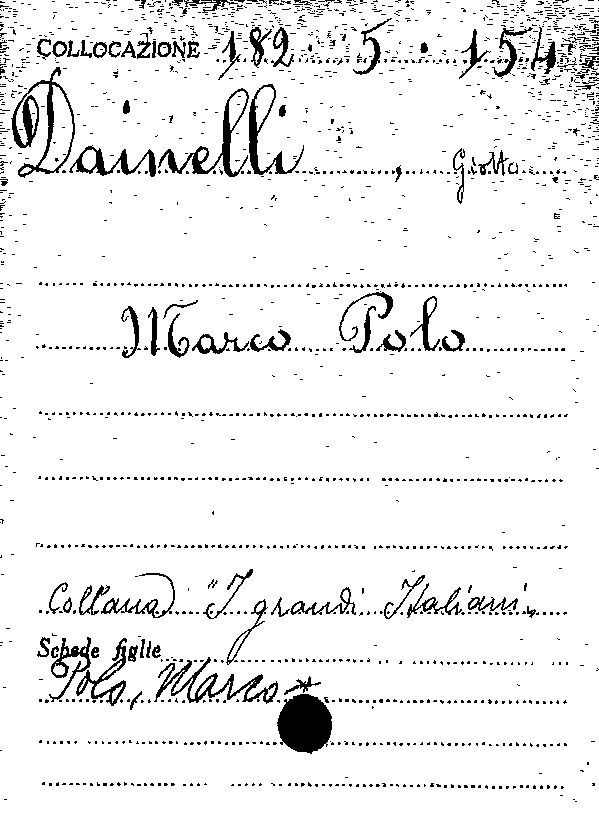 COLLOCAZIONE 182.5.154
Dainelli, Giotto
Marco Polo
Collana "I grandi Italiani"
Schede figlie
Polo, Marco *